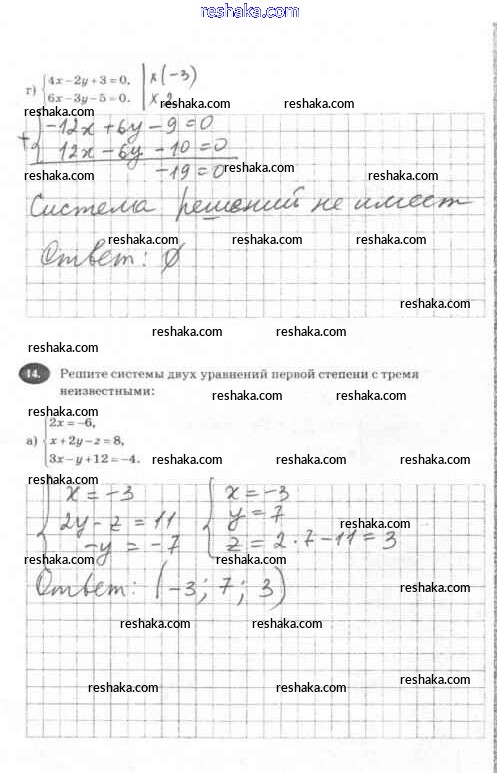 reshaka.com
г) 4x – 2y + 3 = 0, | × (-3)
6x – 3y – 5 = 0. | × 2
reshaka.com reshaka.com reshaka.com
+ -12x + 6y - 9 = 0
12x - 6y - 10 = 0
reshaka.com reshaka.com reshaka.com
-19 = 0
Система решений не имеет
reshaka.com reshaka.com reshaka.com
Ответ: ∅
reshaka.com
reshaka.com reshaka.com reshaka.com
14. Решите системы двух уравнений первой степени с тремя
неизвестными:
reshaka.com reshaka.com reshaka.com
2x = –6,
а) x + 2y – z = 8,
3x – y + 12 = –4.
reshaka.com reshaka.com reshaka.com
x = -3 x = -3
2y - z = 11 y = 7
reshaka.com
-y = -7 z = 2 · 7 - 11 = 3
reshaka.com reshaka.com
Ответ: (-3; 7; 3)
reshaka.com
reshaka.com reshaka.com
reshaka.com reshaka.com reshaka.com